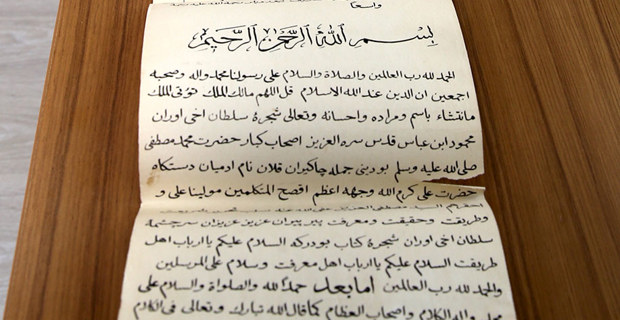 واسعا
بسم الله الرحمن الرحيم
الحمد لله رب العالمين والصلاة والسلام على رسولنا محمد واله وصحبه
اجمعين ان الدين عند الله الاسلام قل اللهم مالك الملك تؤتى الملك
من تشاء باسم ومراده واحسانه وتعالى شجرة سلطان اخى اوران
محمود ابن عباس قدس سره العزيز اصحاب كبار حضرت محمد مصطفى
صلى الله عليه وسلم بودينى جمله چاكيران قلان نام ادميان دستكاه
حضرت على كرم الله وجهه اعظم افصح المتكلمين مولينا على و
وطريقت وحقيقت ومعرفت پير پيران عزيز عزيزان سرچشمة
سلطان اخى اوران شجرة كتاب بودركه السلام عليكم يا ارباب اهل
طريقت السلام عليكم يا ارباب اهل معرفت وسلام على المرسلين
والحمد لله رب العالمين امابعد حمدا لله والصلواة والسلام على
محمد واله الكرام واصحاب العظام كما قال الله تبارك وتعالى فى الكلام